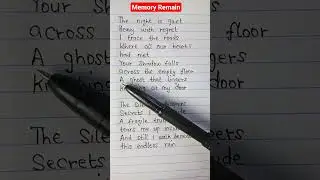 Memory Remain
The night is quiet
Heavy with regret
I trace the roads
Where all our hearts
had met
Your Shadow falls
across the empty floor
A ghost that lingers
at my door
The
Secrets I
A fragile
tears me up
And still I walk
this endless rain
across
floor
A ghost
The Sile